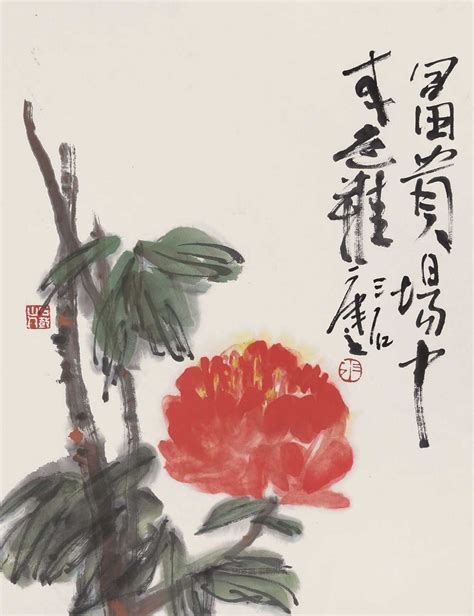 富貴場中
本色難
三石